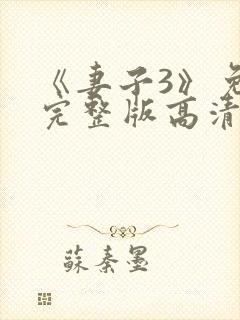 《妻子3》免
完整版高清
蘇秦墨